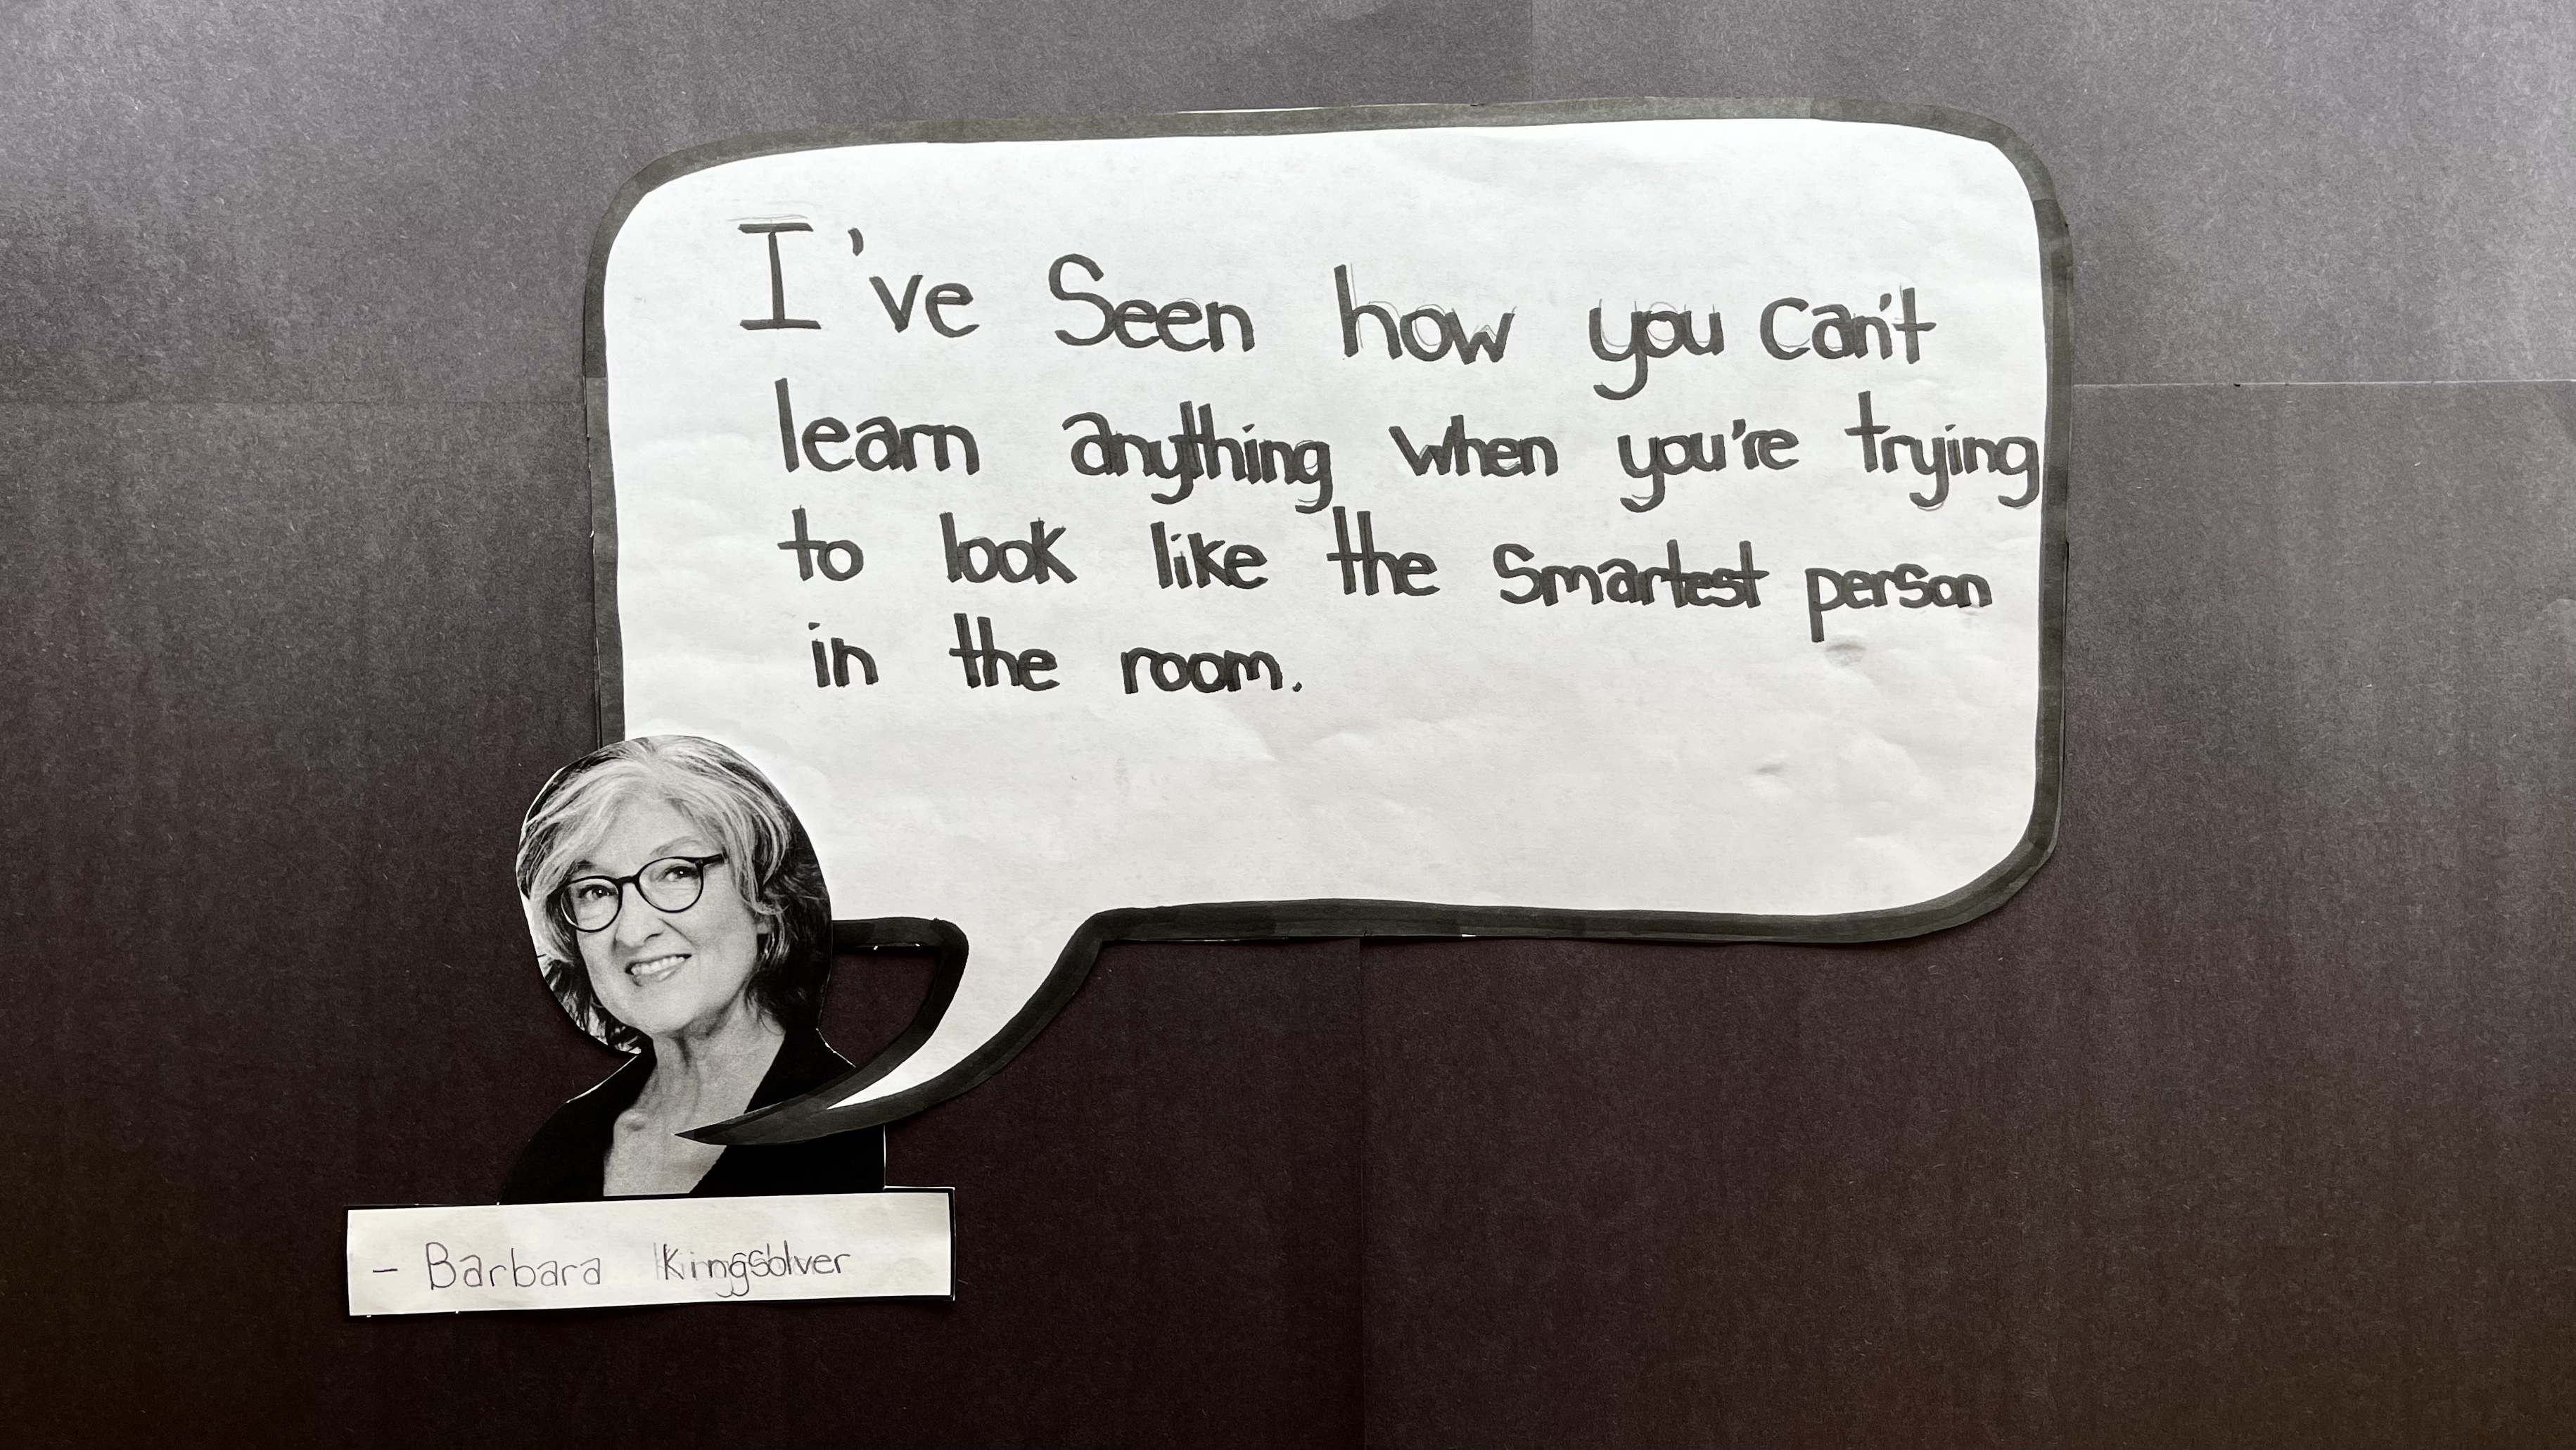 I've Seen how you can't
learn anything when you're trying
to look like the Smartest person
in the room.
- Barbara Kingsolver